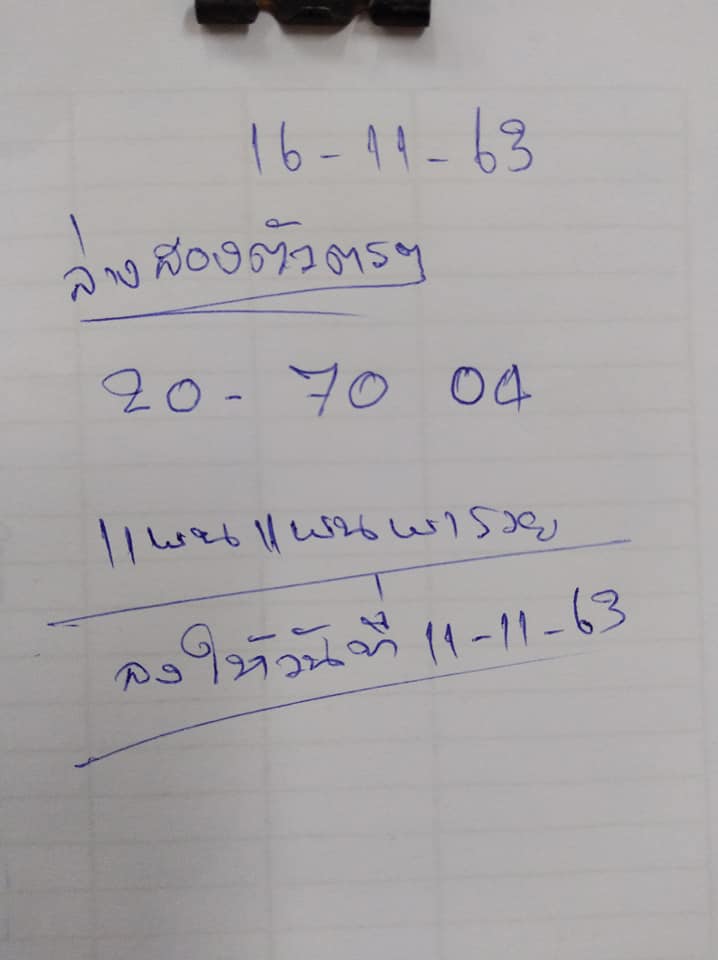 16-11-63
ล่างสองตัวตรงๆ
20 - 70 04
แพนแพนพารวย
ลงให้วันที่ 11-11-63